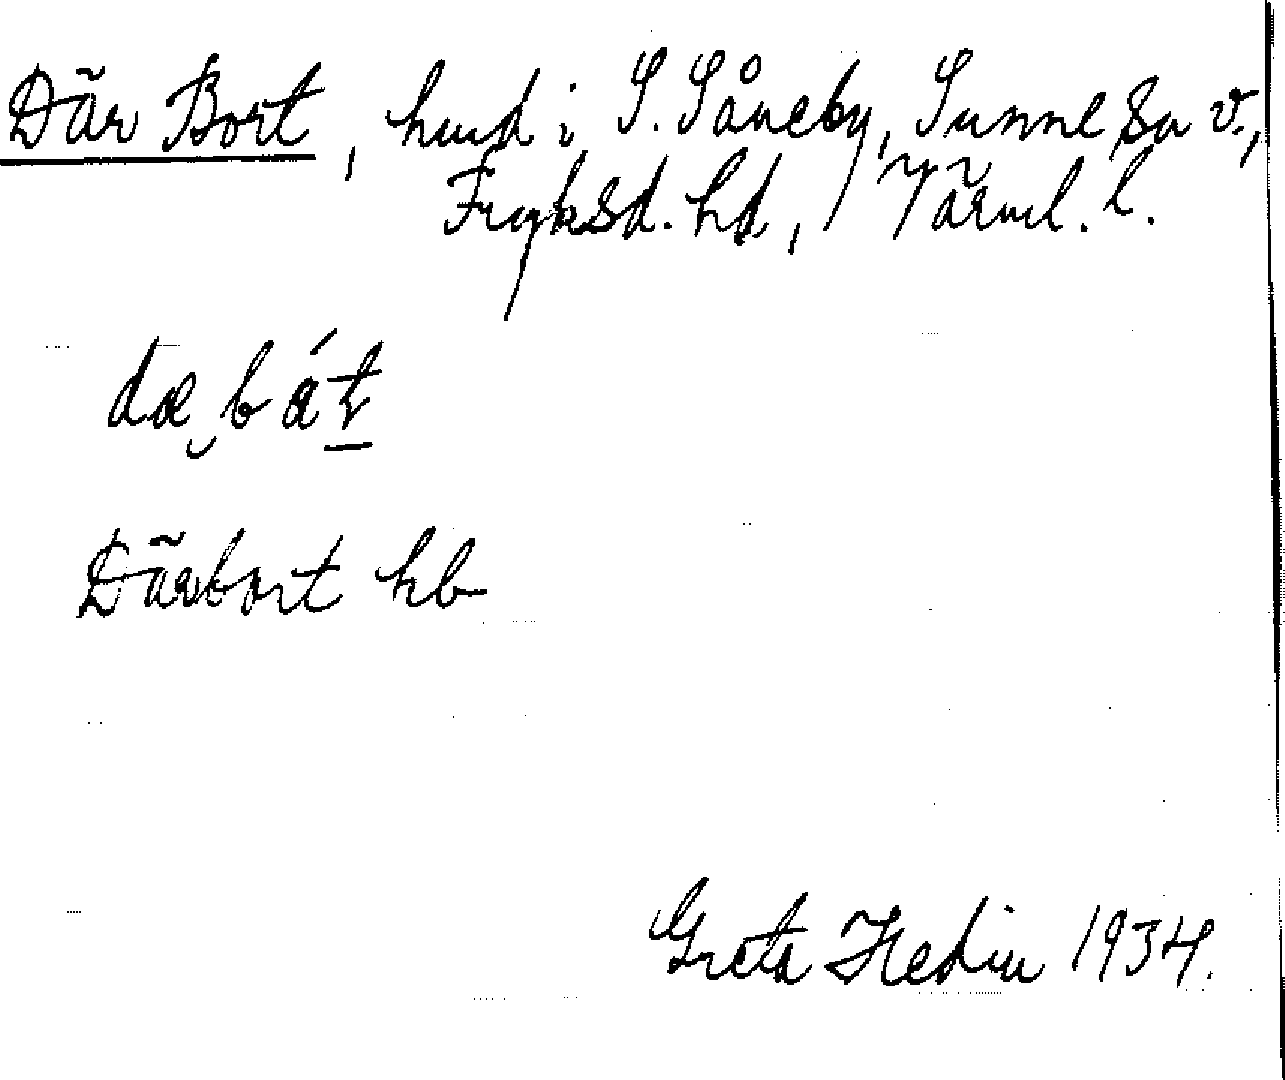 Där Bort, hmd i S. Såneby, Sunne sn v.,
Fryksd. hd, Värml. l.
dæ bát
Därbort hb
Greta Hedin 1934.